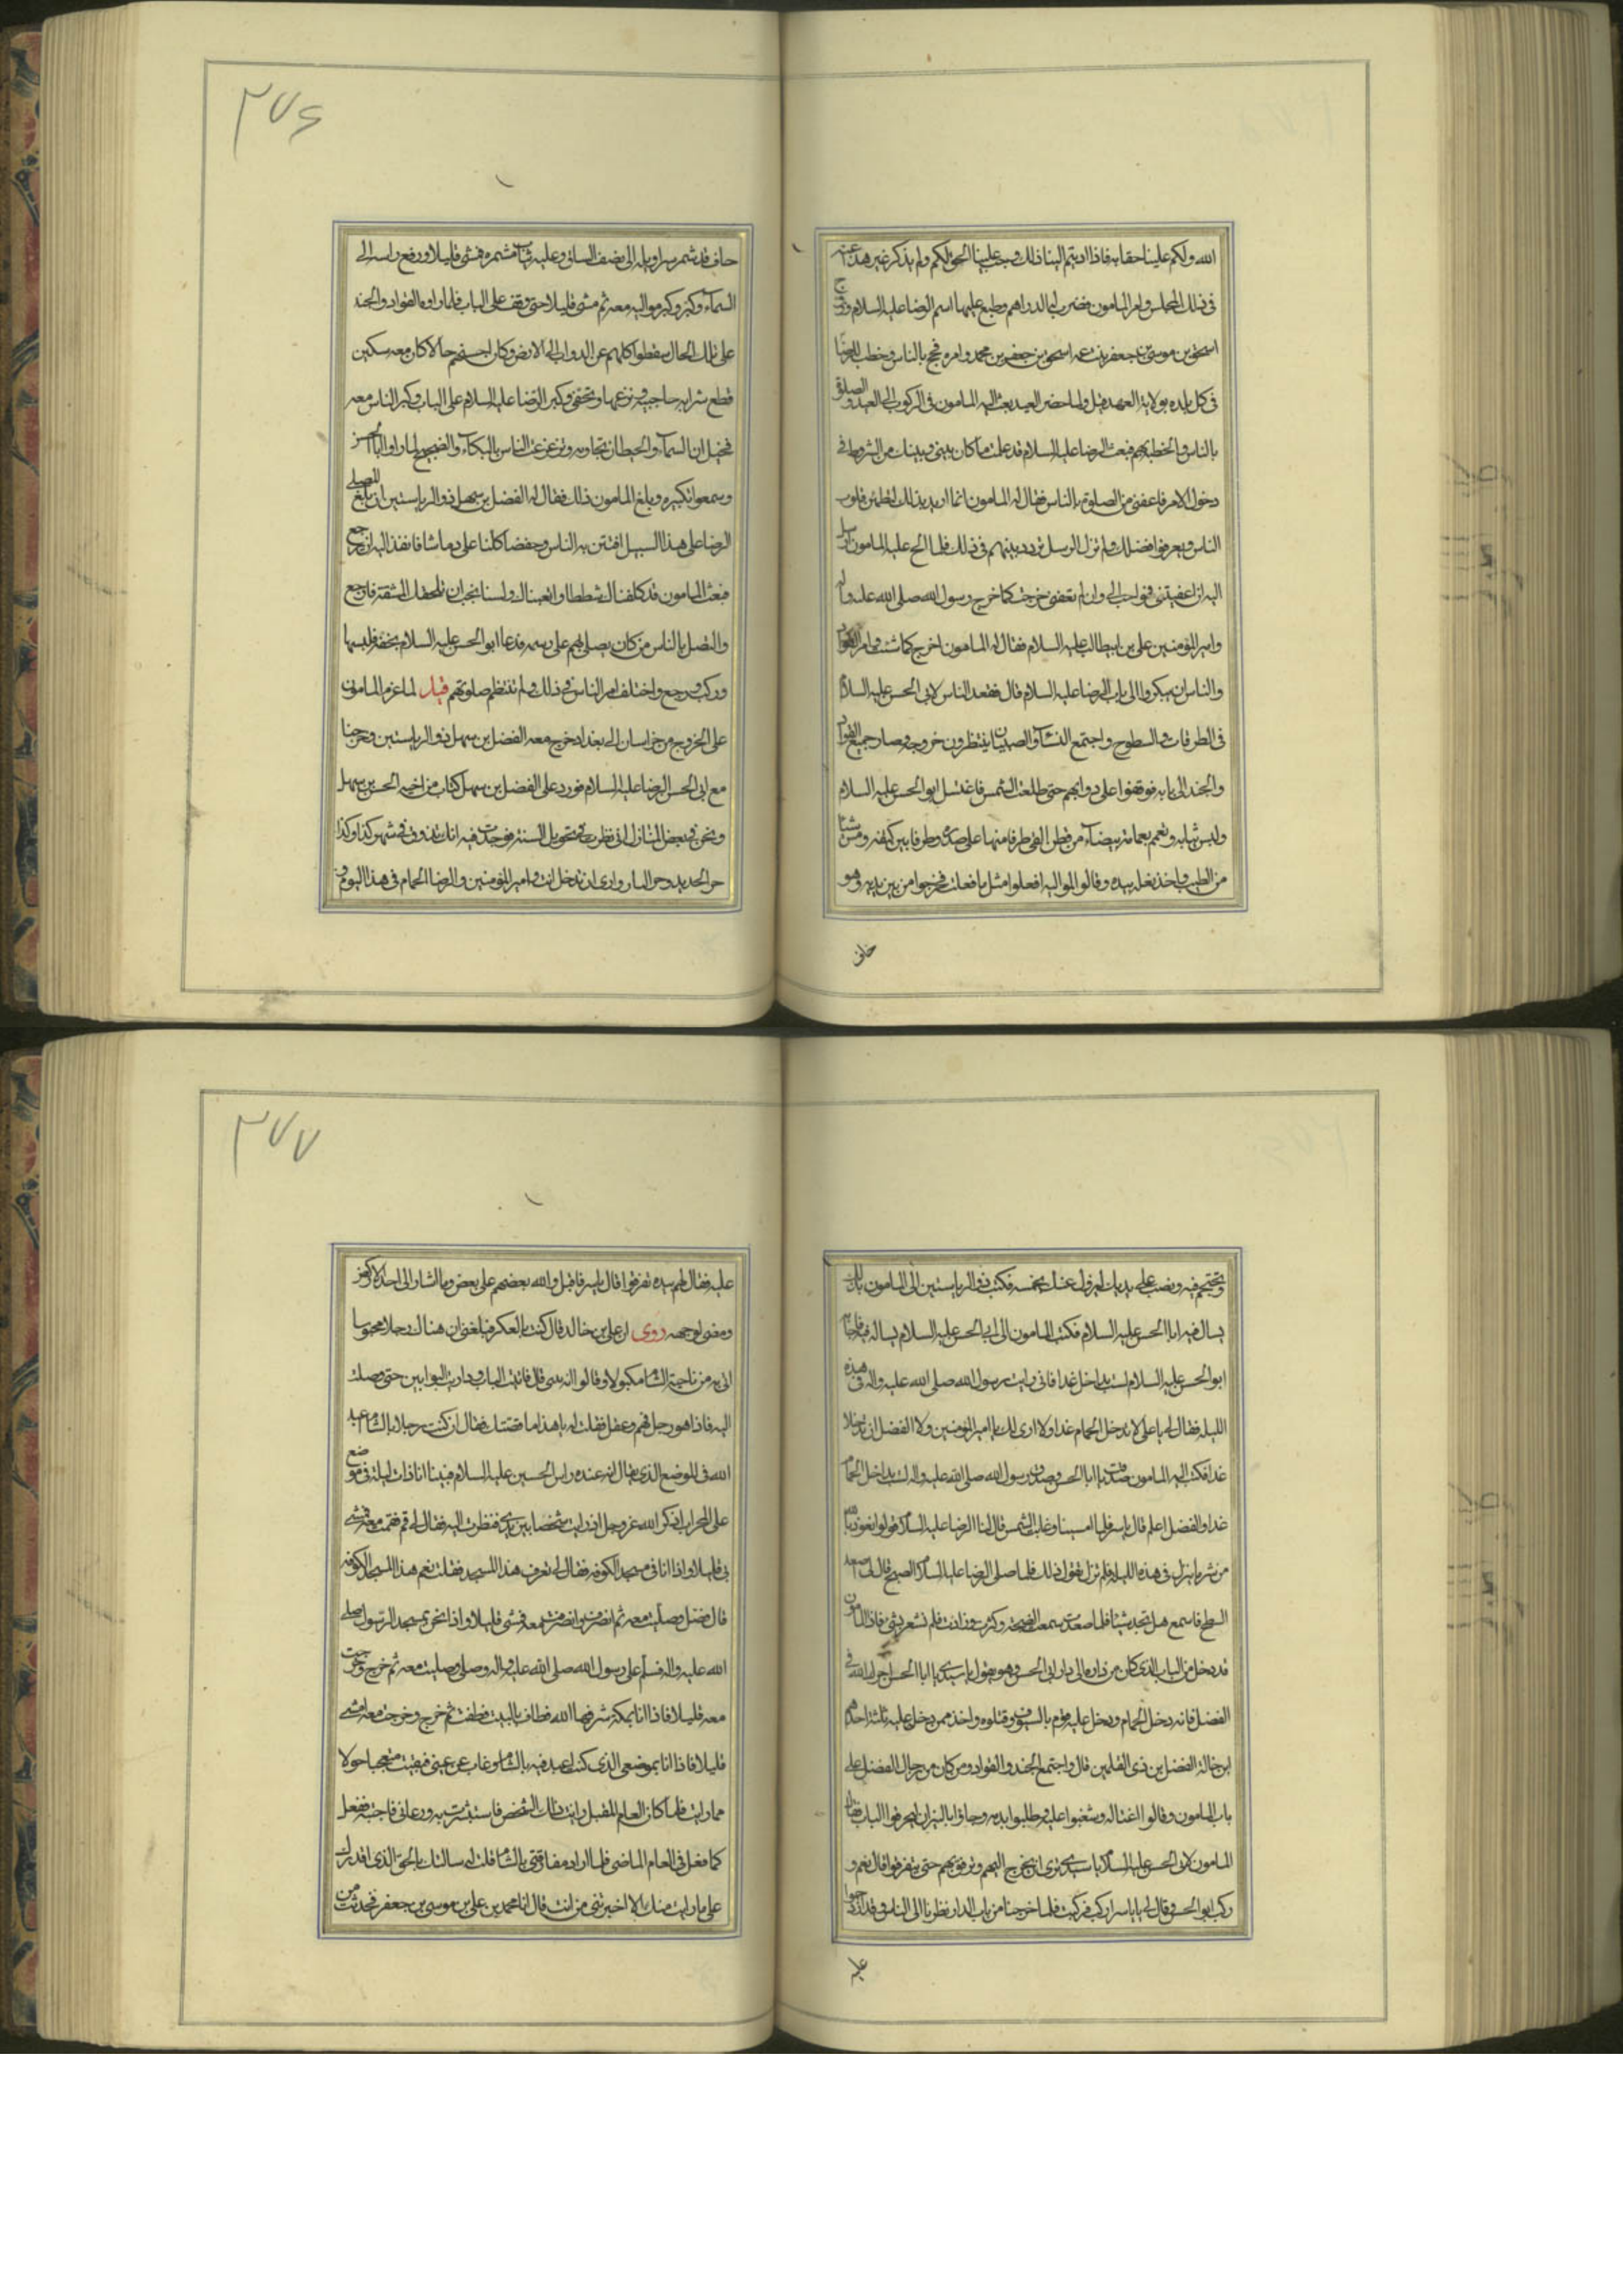 الله ولكم علينا حقا به فاذا اديتم الينا ذلك وجب علينا الحق لكم ولم يذكر غير هذا عنه
فى ذلك المجلس وامر المامون فضربت الدراهم وطبع عليها اسم الرضا عليه السلام وزوج
اسحق بن موسى بن جعفر بنت عمه اسحق بن جعفر بن محمد وامره فحج بالناس وخطب للرضا
فى كل بلده بولاية العهد قيل ولما حضر العيد بعث اليه المامون فى الركوب الى العيد والصلوة
بالناس والخطبة بهم فبعث الرضا عليه السلام قد علمت ما كان بينى وبينك من الشروط فى
دخول الامر فاعفنى من الصلوة بالناس فقال له المامون انما اريد بذلك لتطمئن قلوب
الناس ويعرفوا فضلك ولم تزل الرسل تردد بينهم فى ذلك فلما الح عليه المامون ارسل
اليه ان اعفيتنى فهو احب الى وان لم تعفنى خرجت كما خرج رسول الله صلى الله عليه واله
وامير المؤمنين على بن ابيطالب عليه السلام فقال له المامون اخرج كما شئت وامر القواد
والناس ان يبكروا الى باب الرضا عليه السلام قال فقعد الناس لابى الحسن عليه السلام
فى الطرقات والسطوح واجتمع النساء والصبيان ينتظرون خروجه وصار جميع القواد
والجند الى بابه فوقفوا على دوابهم حتى طلعت الشمس فاغتسل ابو الحسن عليه السلام
ولبس ثيابه وتعمم بعمامة بيضاء من قطن القى طرفا منها على صدره وطرفا بين كتفه ومس شيئا
من الطيب واخذ بغله بيده وقالوا لمواليه افعلوا مثل ما فعلت فخرجوا من بين يديه وهو
خاف
٢٧٦
حاف قد شمر سراويله الى نصف الساق وعليه ثياب مشمره فمشى قليلا ورفع راسه الى
السماء وكبر وكبر مواليه معه ثم مشى قليلا حتى وقف على الباب فلما راوه القواد والجند
على تلك الحال سقطوا كلهم عن الدواب الى الارض وكان احسنهم حالا كان معه سكين
قطع شرابه حاجبيه ونزعها وتحفى وكبر الرضا عليه السلام على الباب وكبر الناس معه
فخيل ان السماء والحيطان تجاوبه وتزعزعت الناس بالبكاء والضجيج لما راوا ابا الحسن
وسمعوا تكبيره وبلغ المامون ذلك فقال له الفضل بن سهل ذو الرياستين ان بلغ المصلى
الرضا على هذا السبيل افتتن به الناس وخفضا كلنا على دمائنا فانفذ اليه ان يرجع
فبعث المامون قد كلفناك شططا واتعبناك ولسنا نحب ان تلحقك المشقة فارجع
وليصل بالناس من كان يصلى بهم على رسمه فدعا ابو الحسن عليه السلام بخفه فلبسها
وركب ورجع واختلف امر الناس فى ذلك ولم تنتظم صلوتهم قيل لما عزم المامون
على الخروج من خراسان الى بغداد خرج معه الفضل بن سهل ذو الرياستين وخرجنا
مع ابى الحسن الرضا عليه السلام فورد على الفضل بن سهل كتاب من اخيه الحسن بن سهل
ونحن فى بعض المنازل انى نظرت فى تحويل السنة فوجدت فيه انك تذوق فى شهر كذا وكذا
حر الحديد وحر النار وارى ان تدخل انت وامير المؤمنين والرضا الحمام فى هذا اليوم و
وتحتجم فيه وتصب على يديك الدم ليزول عنك نحسه فكتب ذو الرياستين الى المامون بذلك
يسال فيه ابا الحسن عليه السلام فكتب المامون الى ابى الحسن عليه السلام يساله فيه فاجابه
ابو الحسن عليه السلام لست بداخل غدا فانى رايت رسول الله صلى الله عليه واله فى هذه
الليله فقال لى يا على لا تدخل الحمام غدا ولا ارى لك يا امير المؤمنين ولا الفضل ان تدخلا
غدا فكتب اليه المامون صدقت يا ابا الحسن وصدق رسول الله صلى الله عليه واله لست بداخل الحمام
غدا والفضل اعلم قال ياسر فلما امسينا وغابت الشمس قال لنا الرضا عليه السلام قولوا نعوذ بالله
من شر ما ينزل فى هذه الليله فلم نزل نقول ذلك فلما صلى الرضا عليه السلام الصبح قال لى اصعد
السطح فاسمع هل تجد شيئا فلما صعدت سمعت الضجة وكثرت وزادت فلم نشعر بشى فاذا المامون
قد دخل من الباب الذى كان من داره الى دار ابى الحسن وهو يقول يا سيدى يا ابا الحسن اجرك الله فى
الفضل فانه دخل الحمام ودخل عليه قوم بالسيوف وقتلوه واخذ ممن دخل عليه ثلثة احدهم
ابن خالة الفضل بن ذى القلمين قال واجتمع الجند والقواد ومن كان من رجال الفضل على
باب المامون وقالوا اغتاله وشغبوا عليه وطلبوا بدمه وجاؤا بالنيران ليحرقوا الباب فقال
المامون لابى الحسن عليه السلام يا سيدى ترى ان تخرج اليهم وترفق بهم حتى يتفرقوا قال نعم و
ركب ابو الحسن وقال لى يا ياسر اركب فركبت فلما خرجنا من باب الدار نظرنا الى الناس وقد ازدحموا
عليه
٢٧٧
عليه فقال لهم بيده تفرقوا قال ياسر فاقبل والله بعضهم على بعض وما اشار الى احد الا ركض
ومضى لوجهه روى ان على بن خالد قال كنت بالعسكر فبلغنى ان هناك رجلا محبوسا
اتى به من ناحية الشام مكبولا وقالوا انه تنبى قال فاتيت الباب وداريت البوابين حتى وصلت
اليه فاذا هو رجل فهم وعقل فقلت له يا هذا ما قصتك فقال ان كنت رجلا بالشام اعبد
الله فى الموضع الذى يقال انه عنده راس الحسين عليه السلام فبينا انا ذات ليلة فى موضع
على المحراب اذكر الله عز وجل اذ رايت شخصا بين يدى فنظرت اليه فقال لى قم فقمت معه فمشى
بى قليلا واذا انا فى مسجد الكوفة فقال لى تعرف هذا المسجد فقلت نعم هذا المسجد الكوفه
قال فصلى وصليت معه ثم انصرف وانصرفت معه فمشى قليلا واذا نحن بمسجد الرسول صلى
الله عليه واله فسلم على رسول الله صلى الله عليه واله وصلى وصليت معه ثم خرج وخرجت
معه قليلا فاذا انا بمكة شرفها الله فطاف بالبيت فطفت ثم خرج وخرجت معه فمشى
قليلا فاذا انا بموضعى الذى كنت اعبد فيه بالشام وغاب عن عينى فبقيت متعجبا حولا
مما رايت فلما كان العام المقبل رايت ذلك الشخص فاستبشرت به ودعانى فاجبته ففعل
كما فعل فى العام الماضى فلما اراد مفارقتى بالشام قلت له سالتك بالحق الذى اقدرك
على ما رايت منك الا اخبرتنى من انت قال انا محمد بن على بن موسى بن جعفر فحدثت من